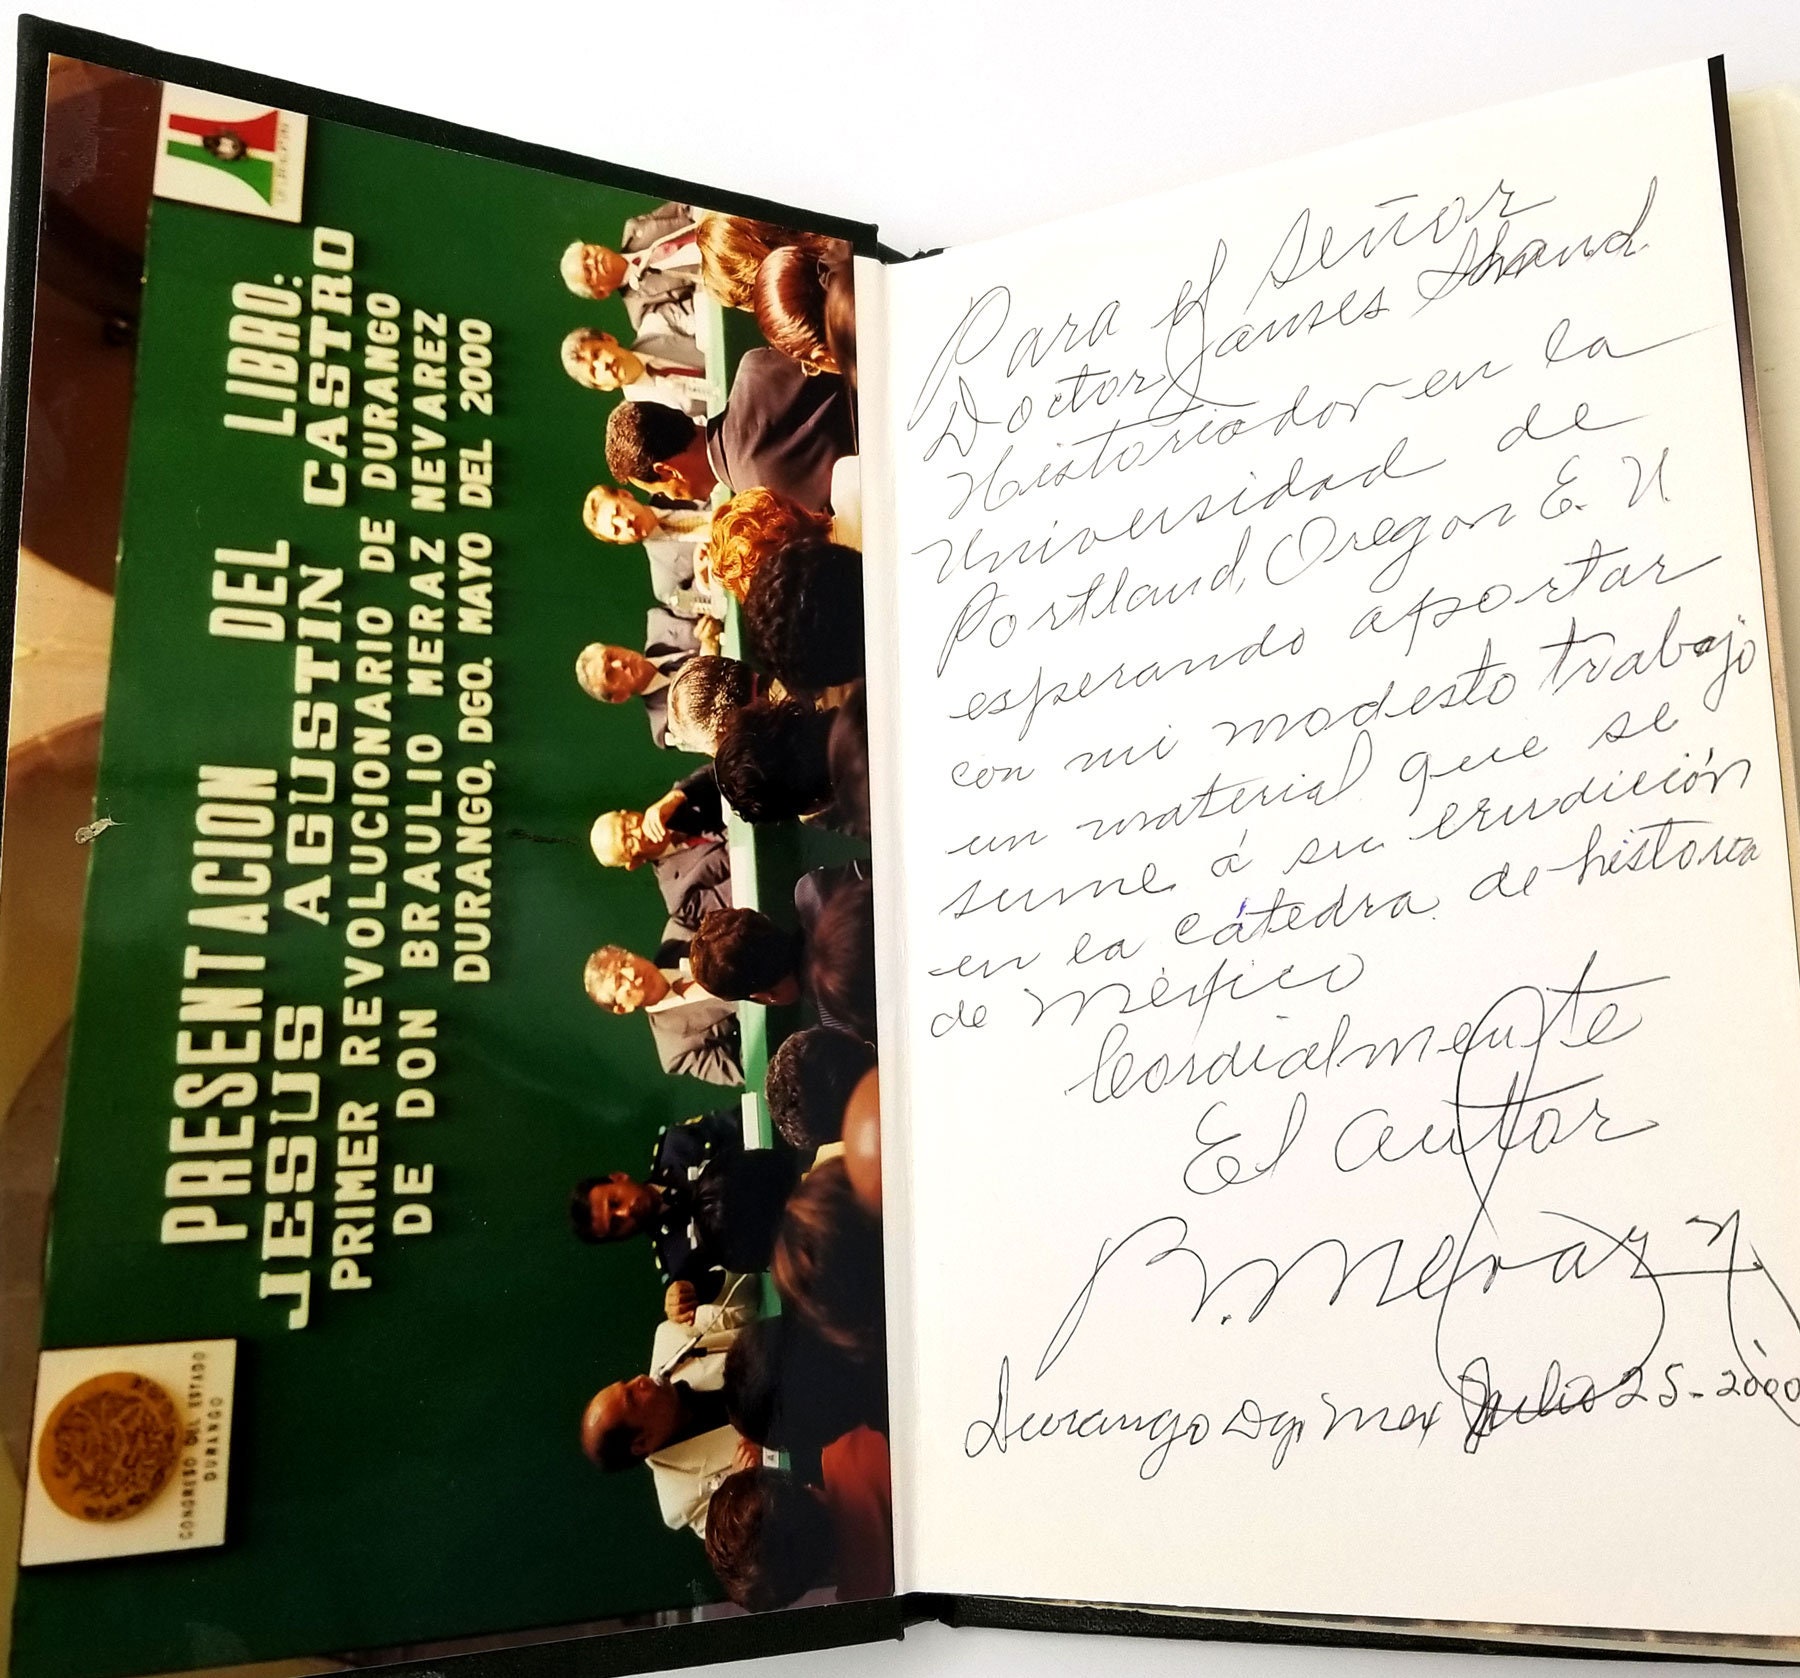 PRESENTACION DEL LIBRO:
JESUS AGUSTIN CASTRO
PRIMER REVOLUCIONARIO DE DURANGO
DE DON BRAULIO MERAZ NEVAREZ
DURANGO, DGO. MAYO DEL 2000
CONGRESO DEL ESTADO
DURANGO
Para el Señor
Doctor
Historiador en la
Universidad de
Portland, Oregon E. U.
esperando aportar
con mi modesto trabajo
un material que se
sume á su erudición
en la cátedra de historia
de México
Cordialmente
El autor
B. Meraz N.
Durango Dgo Mex Julio 25-2000